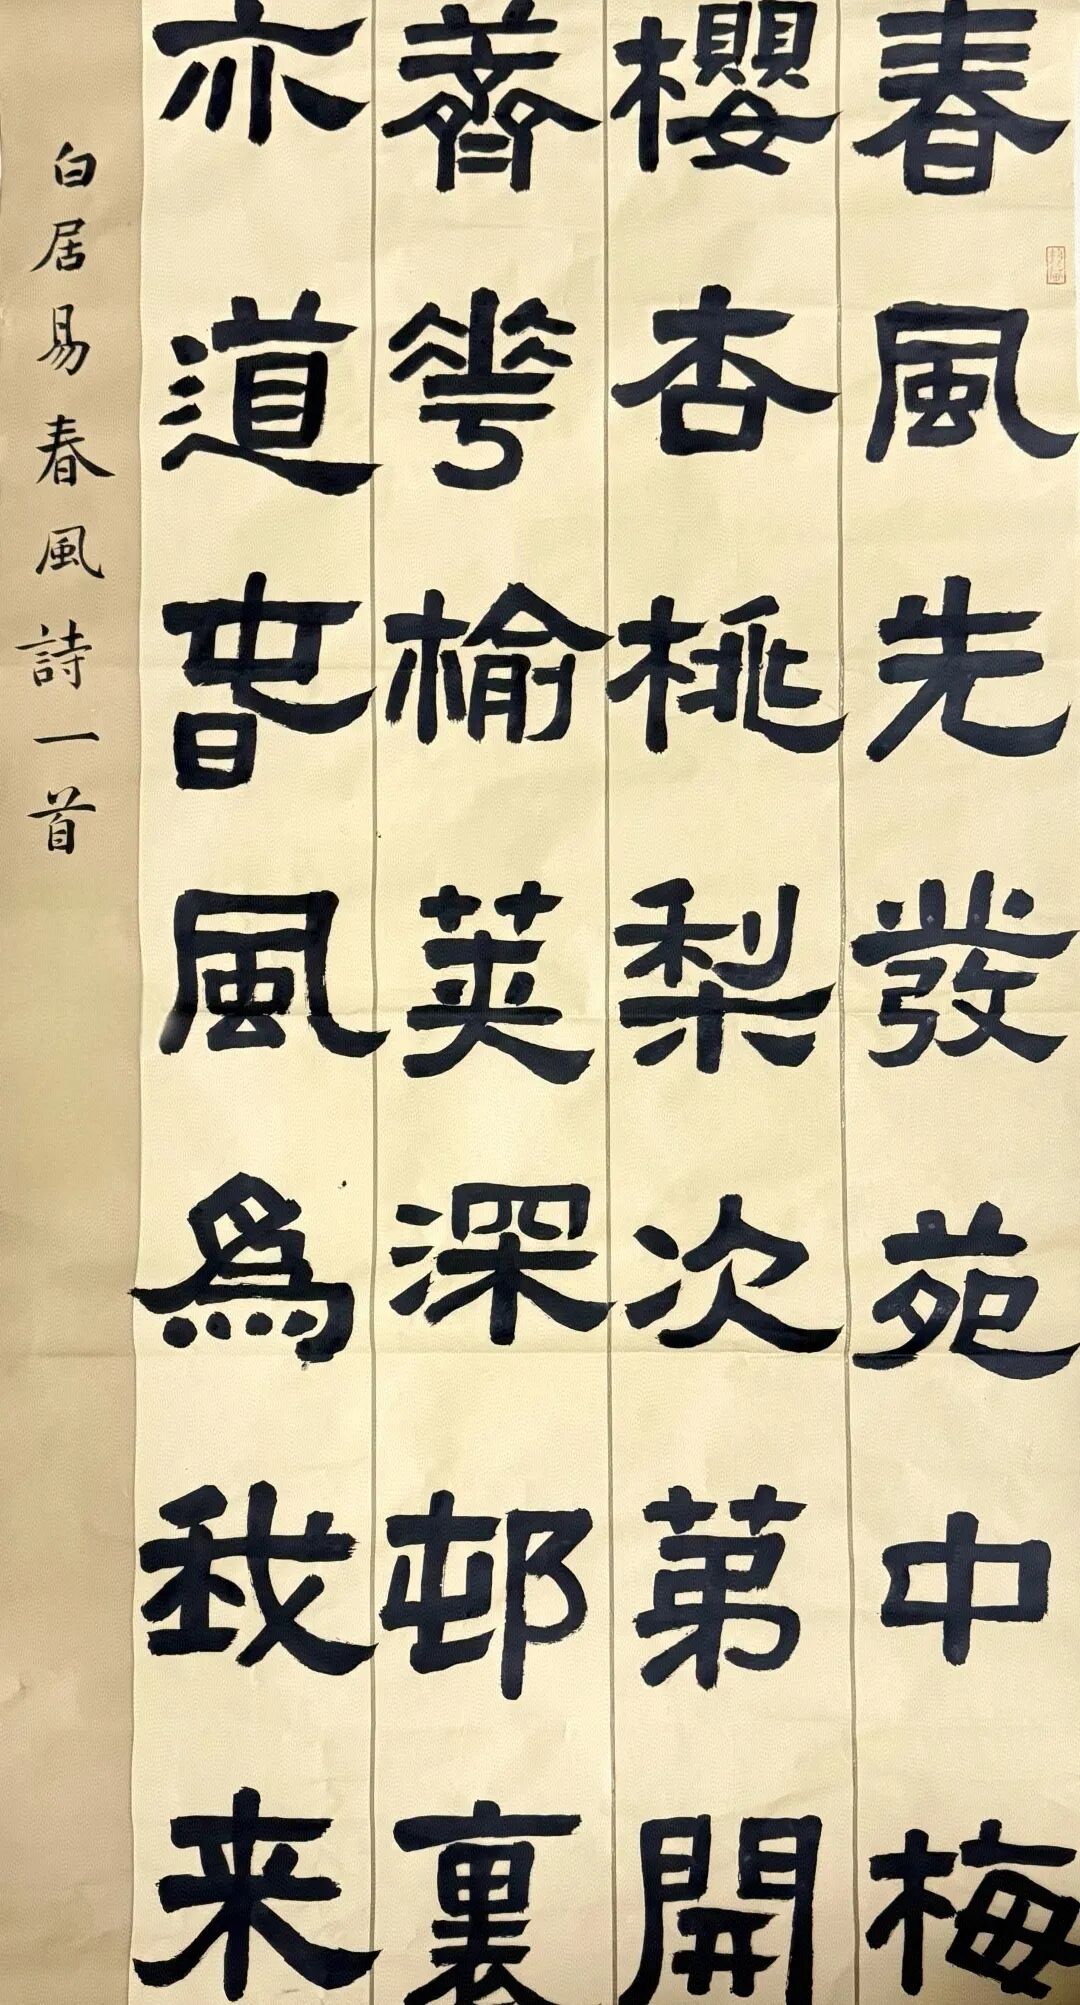 春風先發苑中梅
櫻杏桃梨次第開
薺花榆莢深邨裏
亦道春風為我来
白居易春風詩一首